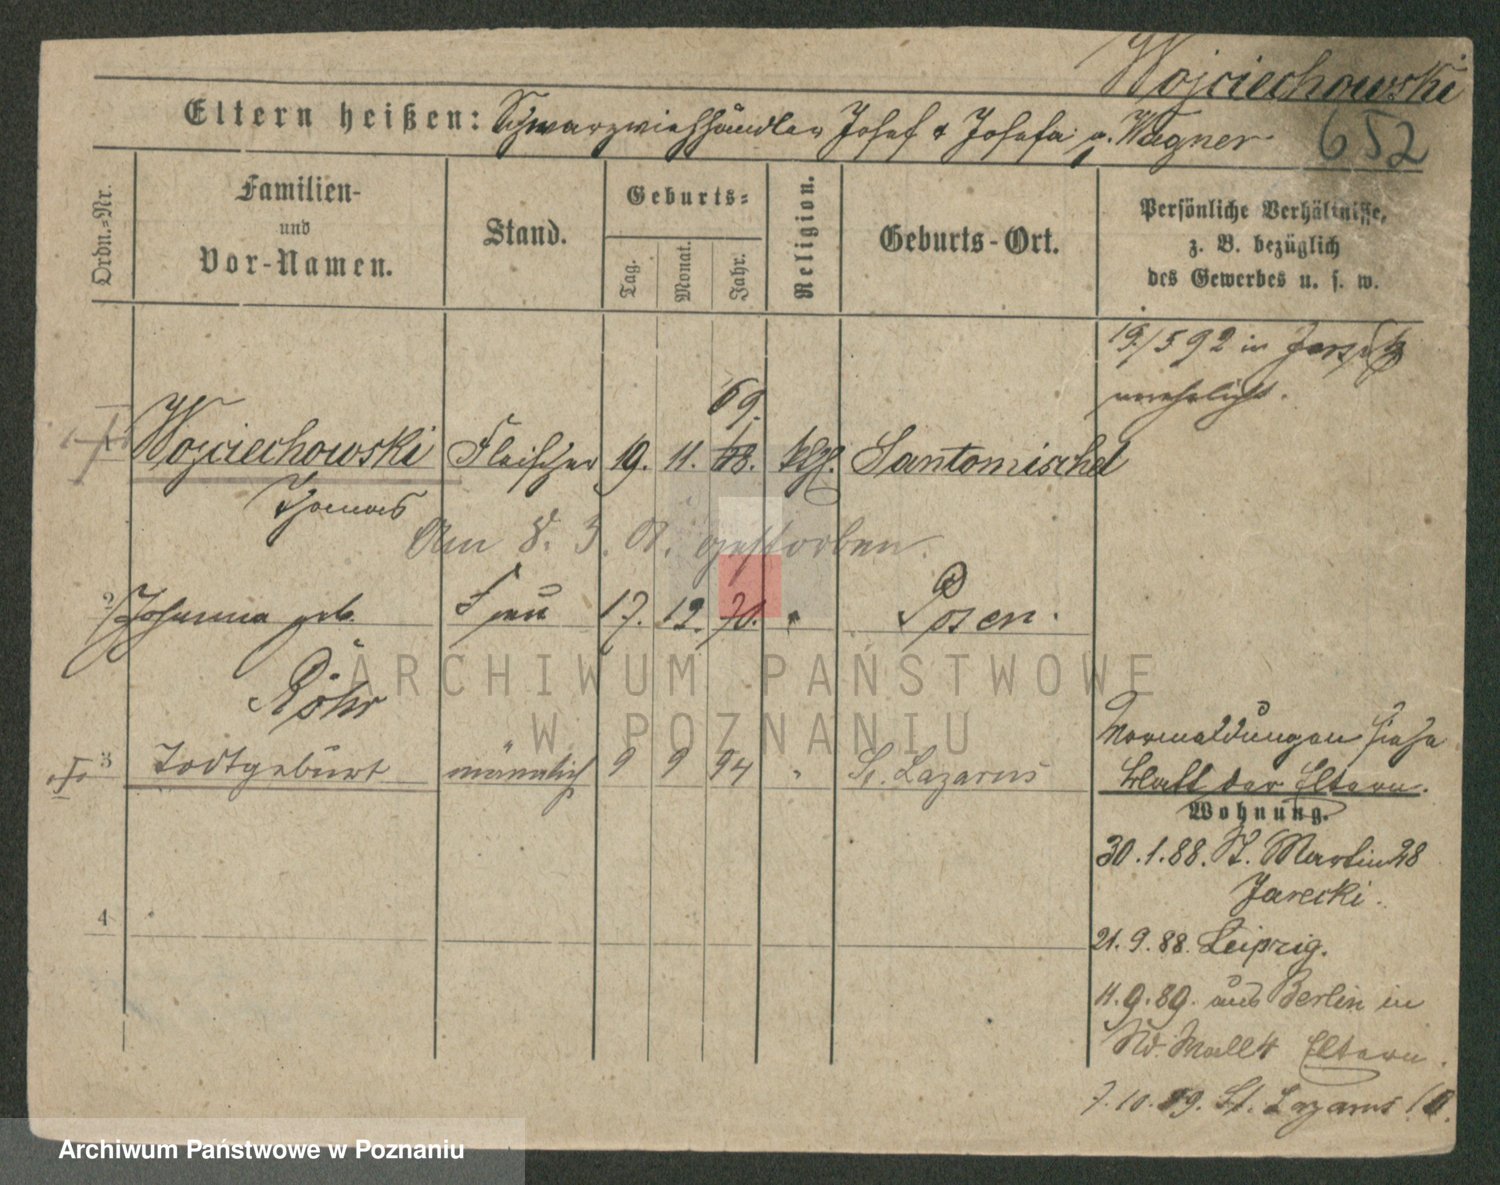 Wojciechowski
Eltern heißen: Schwarzviehhändler Josef & Josefa g. Wagner
652
Ordn.-Nr.
Familien-
und
Vor-Namen.
Stand.
Geburts-
Tag.
Monat.
Jahr.
Religion.
Geburts-Ort.
Persönliche Verhältnisse,
z. B. bezüglich
des Gewerbes u. s. w.
19/5 92 in Jersitz
verehelicht.
69.
Wojciechowski Fleischer 19. 11. 68. kth. Santomischel
Thomas
Am 8. 3. gestorben.
2 Johanna geb. Frau 17. 12. 70. " Posen.
Röhr
3 Todtgeburt männlich 9 9 94 " St. Lazarus
Vormeldungen siehe
Blatt der Eltern.
Wohnung.
30.1.88. St. Martin 28
Jarecki.
4
21.9.88. Leipzig.
11.9.89. aus Berlin in
Wall 4 Eltern.
7.10.89. St. Lazarus
ARCHIWUM PAŃSTWOWE
W POZNANIU
Archiwum Państwowe w Poznaniu